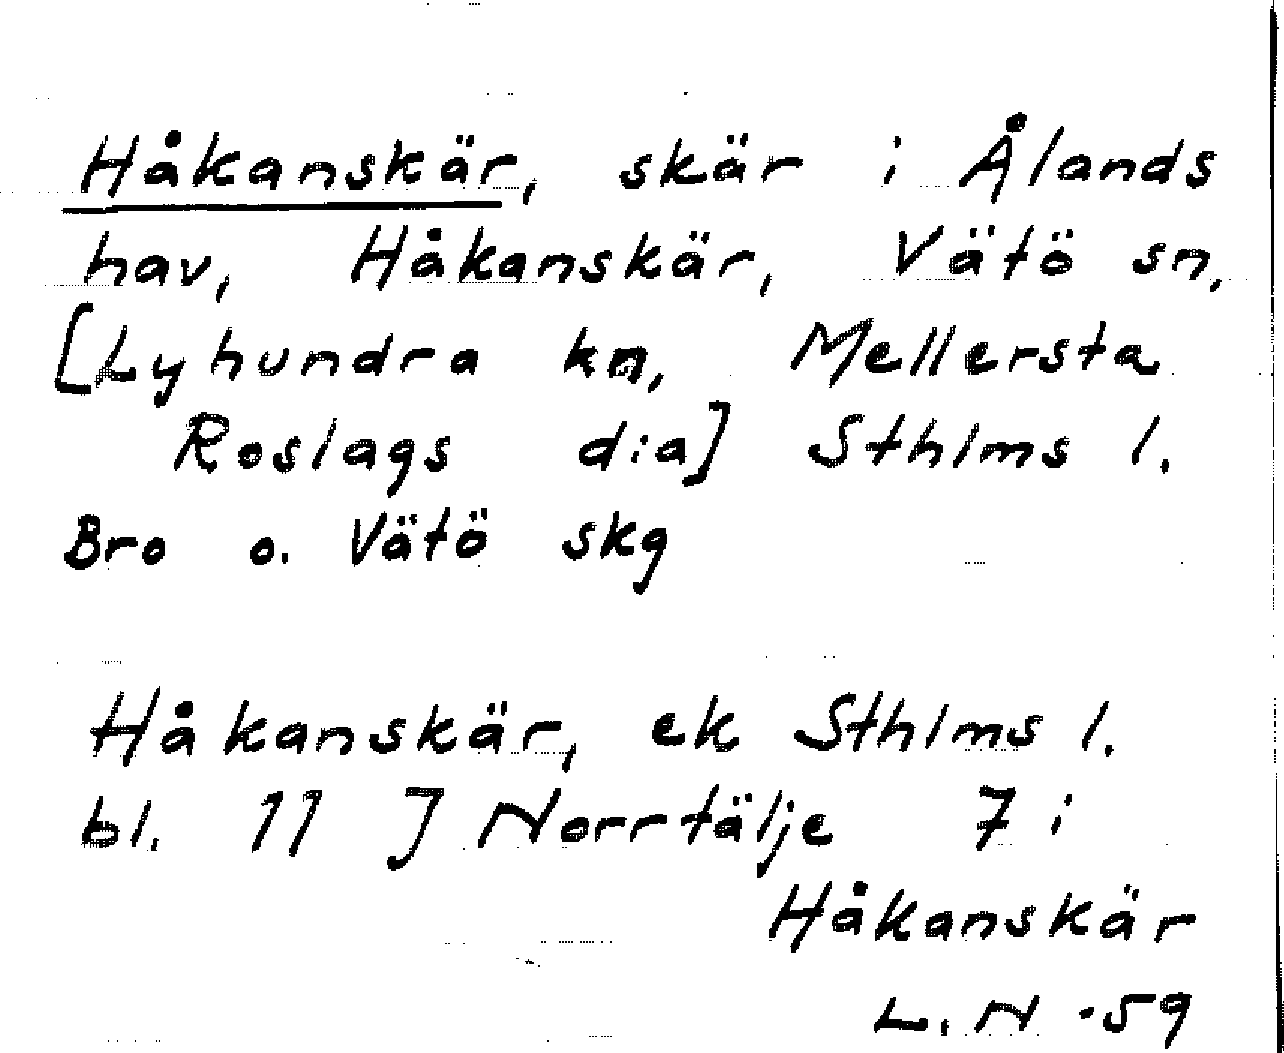 Håkanskär, skär i Ålands
hav, Håkanskär, Vätö sn,
[Lyhundra kn, Mellersta
Roslags d:a] Sthlms l.
Bro o. Vätö skg
Håkanskär, ek Sthlms l.
bl. 11 J Norrtälje 7 i
Håkanskär
L. N -59